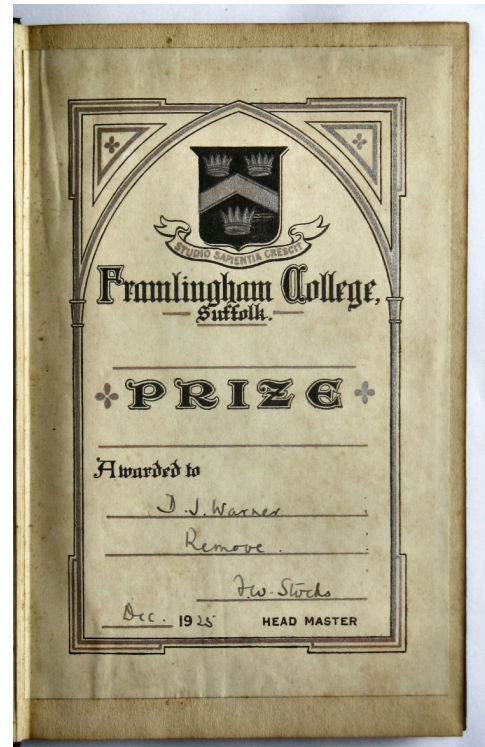 STUDIO SAPIENTIA CRESCIT
Framlingham College,
Suffolk.
PRIZE
Awarded to
D. J. Warner
Remove.
F.W. Stocks
Dec. 1925 HEAD MASTER